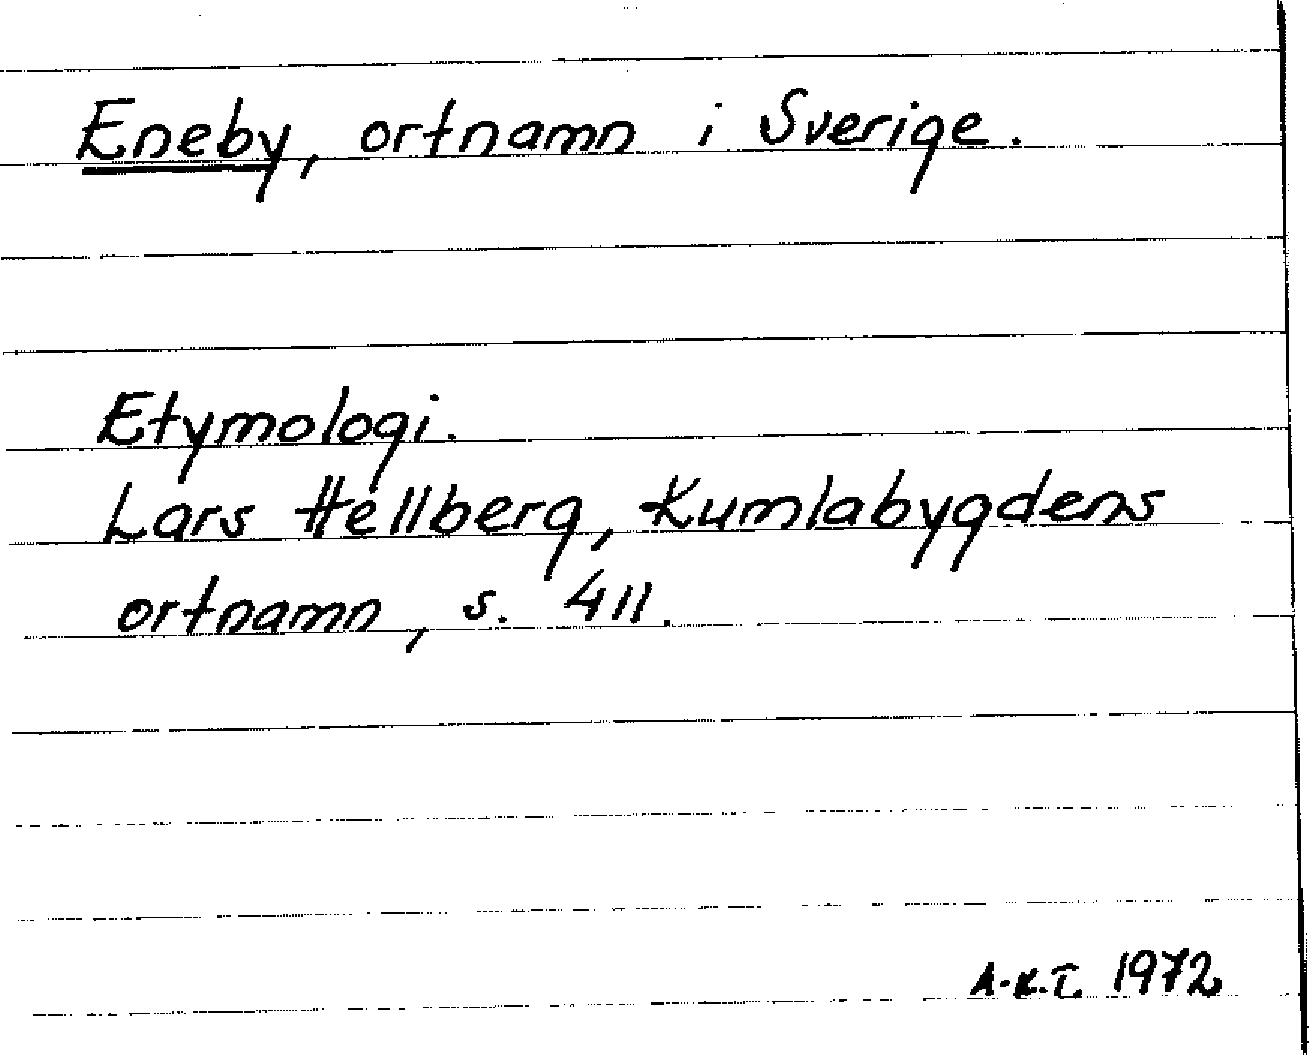 Eneby, ortnamn i Sverige.
Etymologi.
Lars Hellberg, Kumlabygdens
ortnamn, s. 411.
A-K.T. 1972